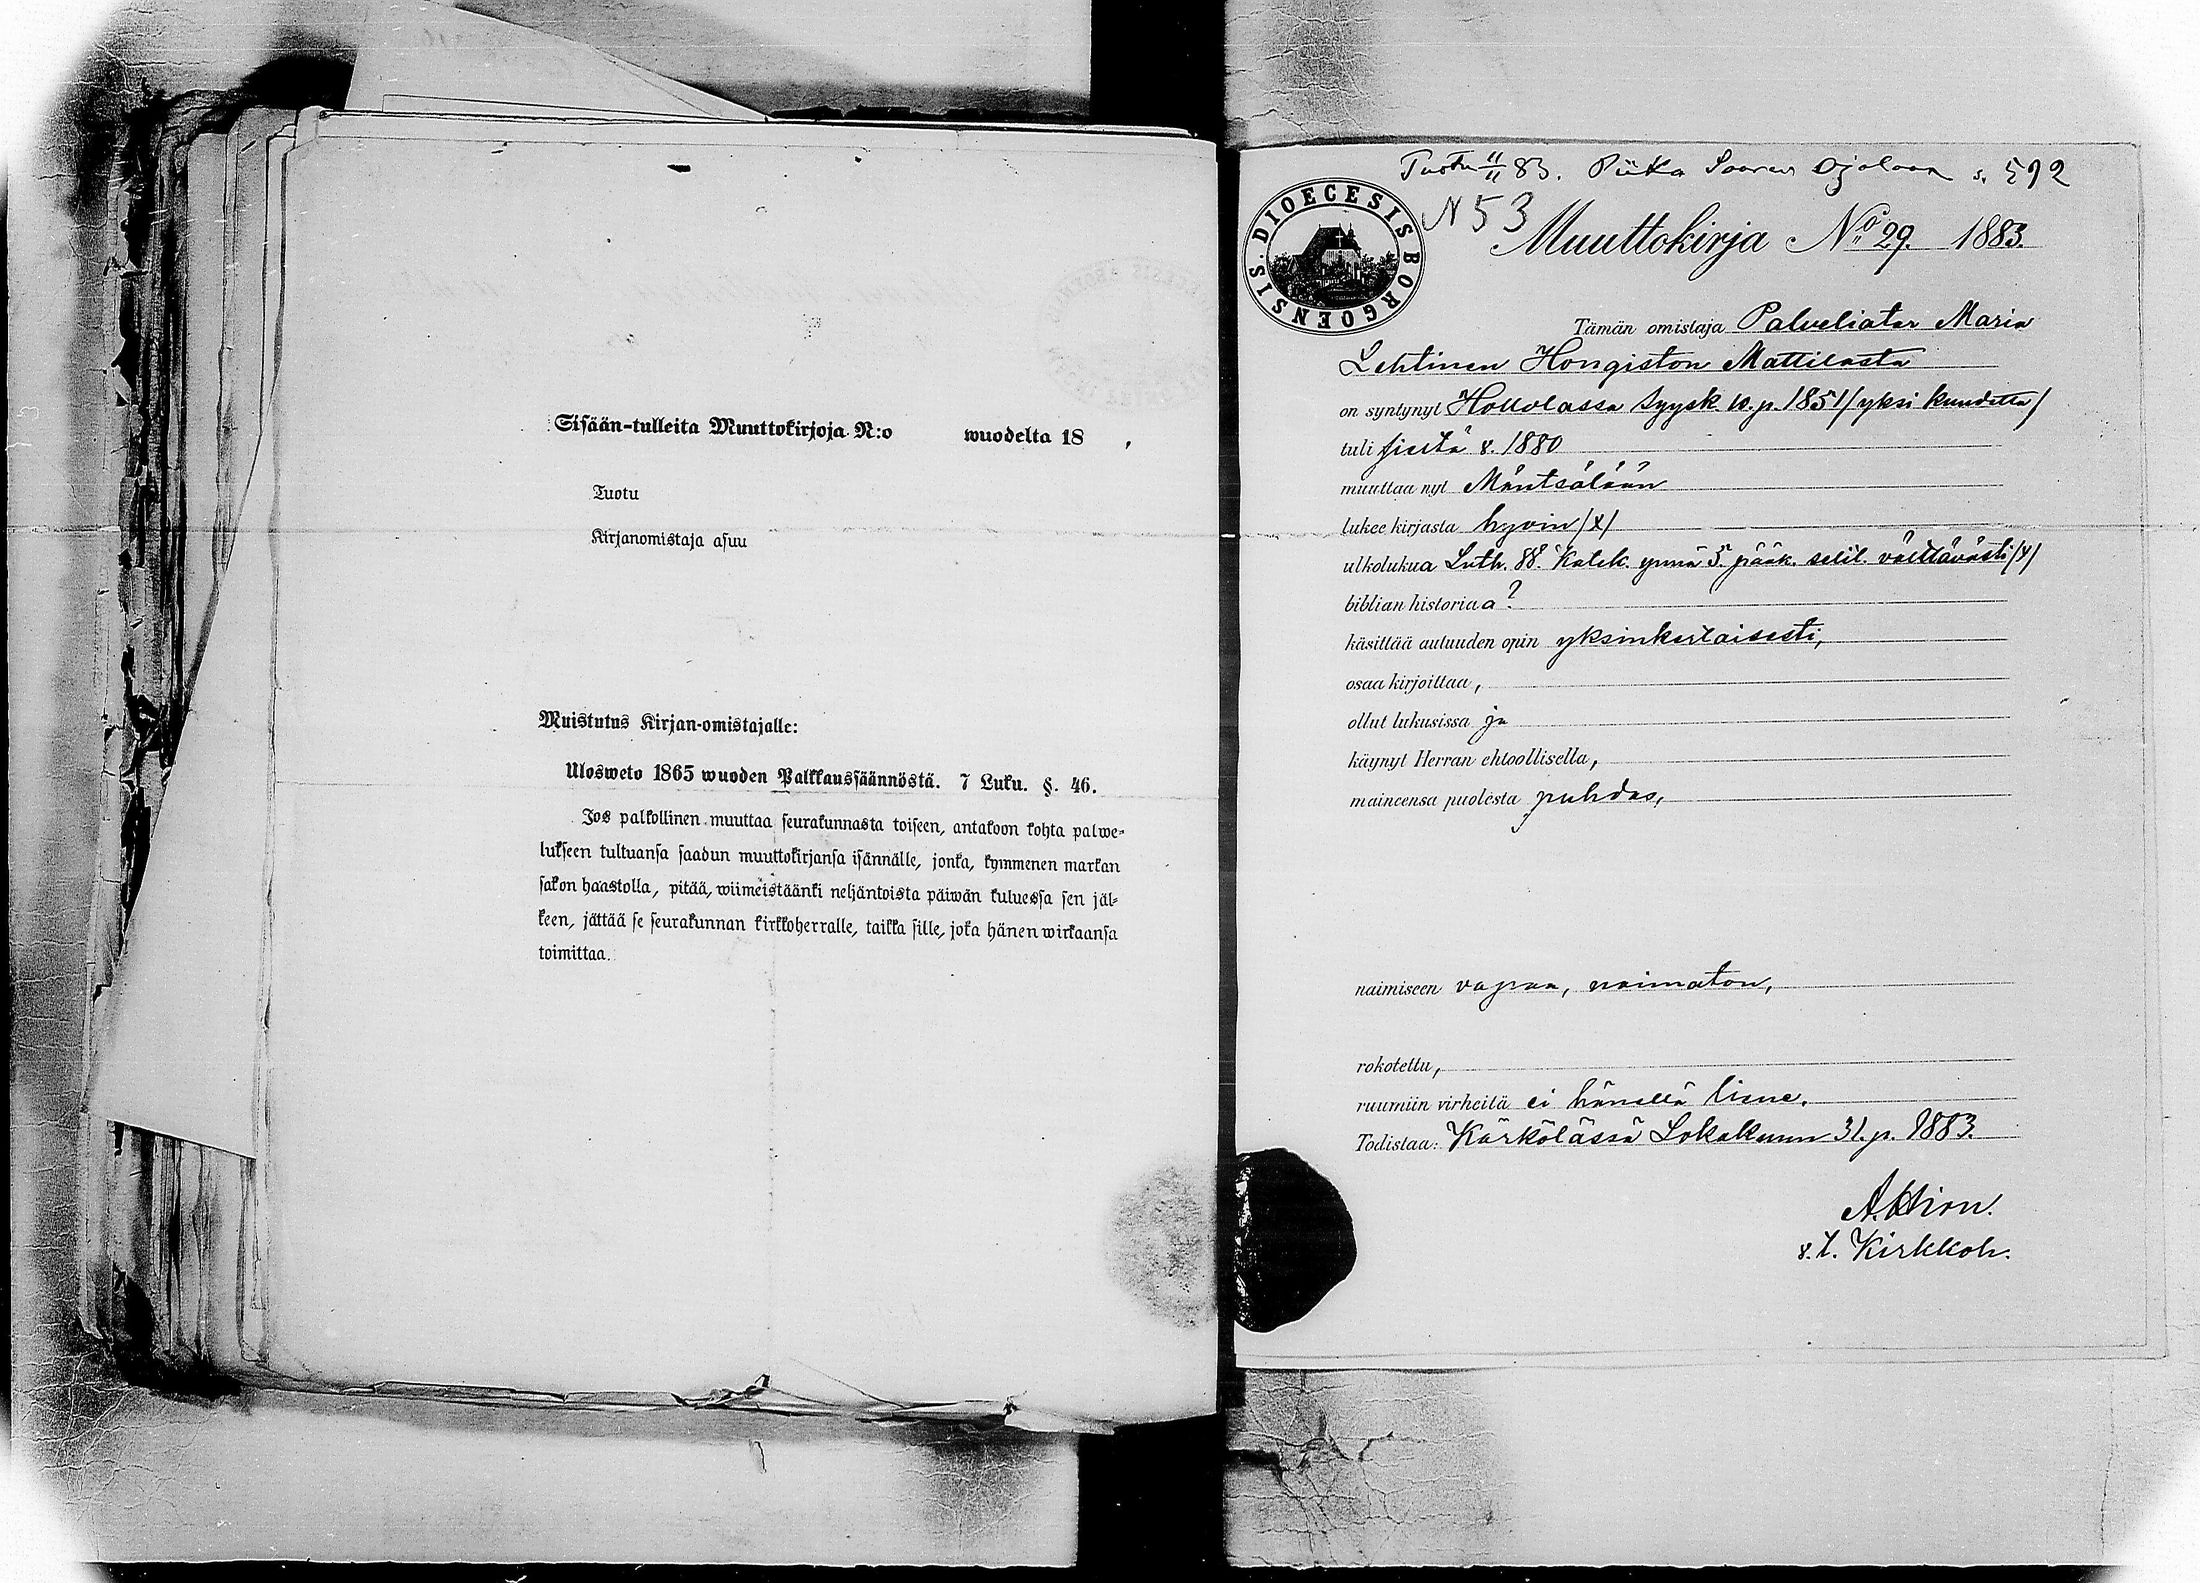 Sisään-tulleita Muuttokirjoja N:o wuodelta 18 .
Tuotu
Kirjanomistaja asuu
Muistutus Kirjan-omistajalle:
Ulosweto 1865 wuoden Palkkaussäännöstä. 7 Luku. §. 46.
Jos palkollinen muuttaa seurakunnasta toiseen, antakoon kohta palwe-
lukseen tultuansa saadun muuttokirjansa isännälle, jonka, kymmenen markan
sakon haastolla, pitää, wiimeistäänki neljäntoista päiwän kuluessa sen jäl-
keen, jättää se seurakunnan kirkkoherralle, taikka sille, joka hänen wirkaansa
toimittaa.
Tuotu 11/11 83. Piika Saaren Ojalaan s. 592
DIOECESIS BORGOENSIS.
N 53
Muuttokirja No 29. 1883.
Tämän omistaja Palveliatar Maria
Lehtinen Hongiston Mattilasta
on syntynyt Hollolassa Syysk. 10. p. 1851 /yksi kuudetta/
tuli sieltä v. 1880
muuttaa nyt Mäntsälään
lukee kirjasta hyvin /x/
ulkolukua Luth. Katek. ynnä 5. pääk. selit. välttävästi /x/
biblian historiaa ?
käsittää autuuden opin yksinkertaisesti,
osaa kirjoittaa,
ollut lukusissa ja
käynyt Herran ehtoollisella,
maineensa puolesta puhdas,
naimiseen vapaa, naimaton,
rokotettu,
ruumiin virheitä ei hänellä liene.
Todistaa: Kärkölässä Lokakuun 31. p. 1883.
v.t. Kirkkoh.